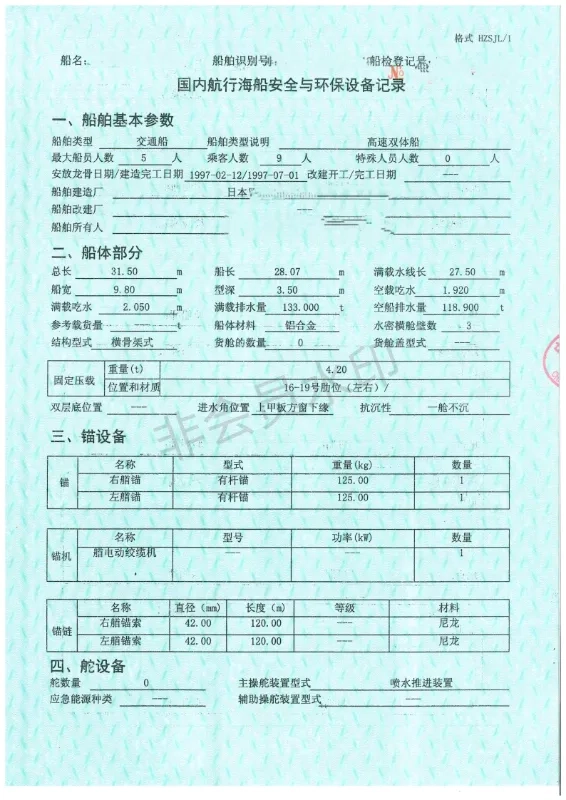 格式 HZSJL/1
船名: 船舶识别号: 船检登记号
№
国内航行海船安全与环保设备记录
一、船舶基本参数
船舶类型 交通船 船舶类型说明 高速双体船
最大船员人数 5 人 乘客人数 9 人 特殊人员人数 0 人
安放龙骨日期/建造完工日期 1997-02-12/1997-07-01 改建开工/完工日期 ---
船舶建造厂 日本
船舶改建厂 ---
船舶所有人
二、船体部分
总长 31.50 m 船长 28.07 m 满载水线长 27.50 m
船宽 9.80 m 型深 3.50 m 空载吃水 1.920 m
满载吃水 2.050 m 满载排水量 133.000 t 空船排水量 118.900 t
参考载货量 --- t 船体材料 铝合金 水密横舱壁数 3
结构型式 横骨架式 货舱的数量 0 货舱盖型式 ---
固定压载 重量(t) 4.20
位置和材质 16-19号肋位（左右）/
双层底位置 --- 进水角位置 上甲板方窗下缘 抗沉性 一舱不沉
三、锚设备
锚 名称 型式 重量(kg) 数量
右艏锚 有杆锚 125.00 1
左艏锚 有杆锚 125.00 1
锚机 名称 型号 功率(kW) 数量
艏电动绞缆机 --- --- 1
锚链 名称 直径(mm) 长度(m) 等级 材料
右艏锚索 42.00 120.00 --- 尼龙
左艏锚索 42.00 120.00 --- 尼龙
四、舵设备
舵数量 0 主操舵装置型式 喷水推进装置
应急能源种类 --- 辅助操舵装置型式 ---
非会员水印